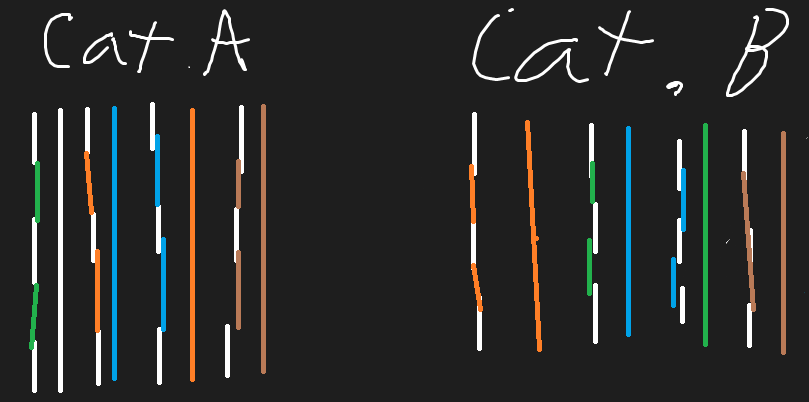 Cat. A
Cat. B